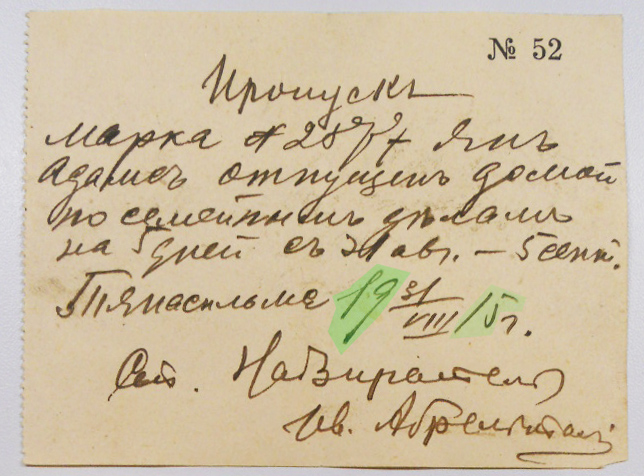 № 52
Пропускъ
марка № Янъ
Адамсъ отпущенъ домой
по семейнымъ дѣламъ
на 5 дней съ 31 авг. – 5 сент.
19 31/VIII 15 г.
Надзиратель
Ив.